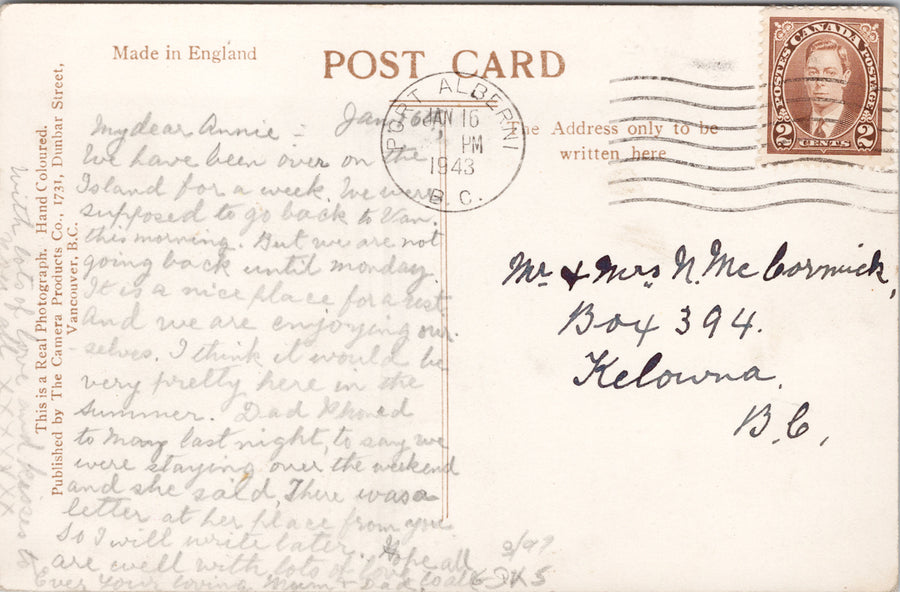 Made in England
POST CARD
The Address only to be
written here
POSTES CANADA POSTAGE
2 CENTS 2
PORT ALBERNI
JAN 16
PM
1943
B.C.
This is a Real Photograph. Hand Coloured.
Published by The Camera Products Co., 1731, Dunbar Street,
Vancouver, B.C.
My dear Annie - Jan 16
We have been over on the
Island for a week. We were
supposed to go back to Van.
this morning. But we are not
going back until monday
It is a nice place for a rest
and we are enjoying our
selves. I think it would be
very pretty here in the
summer. Dad Phoned
to Mary last night, to say we
were staying over the weekend
and she said, There was a
letter at her place from you
so I will write later. Hope all
are well with lots of love
Ever Your loving Mum & Dad.
with lots of love and kisses to
all xxxxxx
Mr & Mrs N. McCormick,
Box 394.
Kelowna,
B.C.